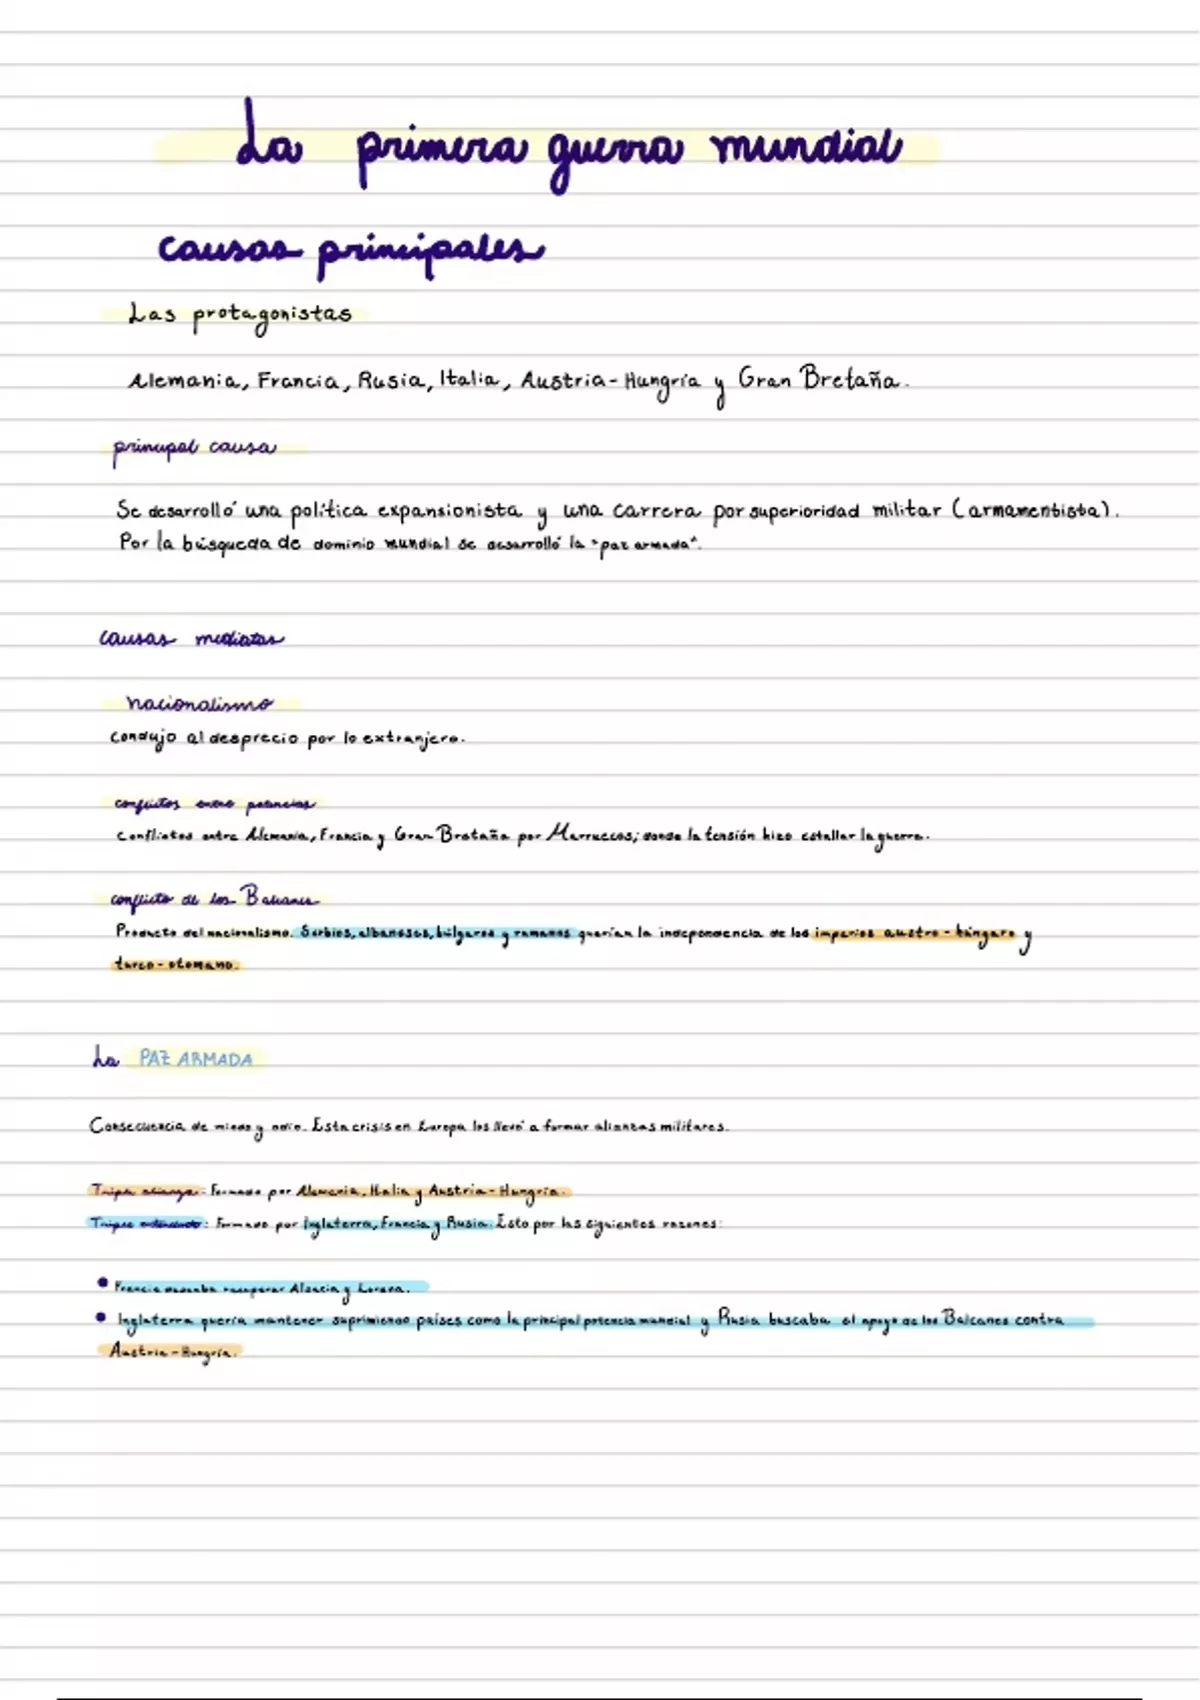 La primera guerra mundial
causas principales
Las protagonistas
Alemania, Francia, Rusia, Italia, Austria-Hungría y Gran Bretaña.
principal causa
Se desarrolló una política expansionista y una carrera por superioridad militar (armamentista).
Por la búsqueda de dominio mundial se desarrolló la "paz armada".
causas mediatas
nacionalismo
Condujo al desprecio por lo extranjero.
conflictos entre potencias
Conflictos entre Alemania, Francia y Gran Bretaña por Marruecos; donde la tensión hizo estallar la guerra.
conflicto de los Balcanes
Producto del nacionalismo. Serbios, albaneses, búlgaros y rumanos querían la independencia de los imperios austro-húngaro y
turco-otomano.
La PAZ ARMADA
Consecuencia de miedo y odio. Esta crisis en Europa los llevó a formar alianzas militares.
Triple alianza: Formado por Alemania, Italia y Austria-Hungría.
Triple entendente: Formado por Inglaterra, Francia y Rusia. Esto por las siguientes razones:
• Francia deseaba recuperar Alsacia y Lorena.
• Inglaterra quería mantener suprimiendo países como la principal potencia mundial y Rusia buscaba el apoyo de los Balcanes contra
Austria-Hungría.